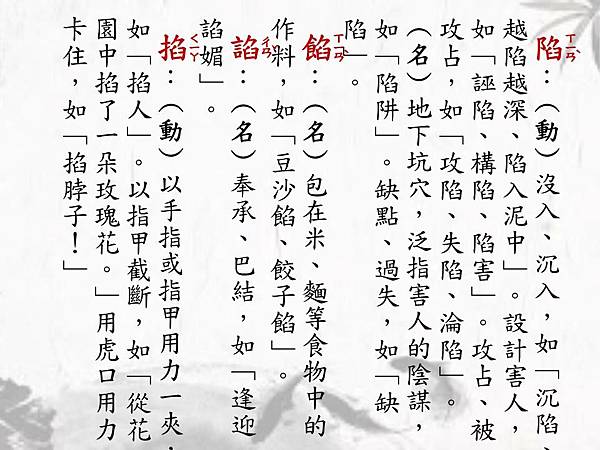 陷ㄒㄧㄢˋ：（動）沒入、沉入，如「沉陷、
越陷越深、陷入泥中」。設計害人，
如「誣陷、構陷、陷害」。攻占、被
攻占，如「攻陷、失陷、淪陷」。
（名）地下坑穴，泛指害人的陰謀，
如「陷阱」。缺點、過失，如「缺
陷」。
餡ㄒㄧㄢˋ：（名）包在米、麵等食物中的
作料，如「豆沙餡、餃子餡」。
諂ㄔㄢˇ：（名）奉承、巴結，如「逢迎
諂媚」。
掐ㄑㄧㄚ：（動）以手指或指甲用力一夾，
如「掐人」。以指甲截斷，如「從花
園中掐了一朵玫瑰花。」用虎口用力
卡住，如「掐脖子！」